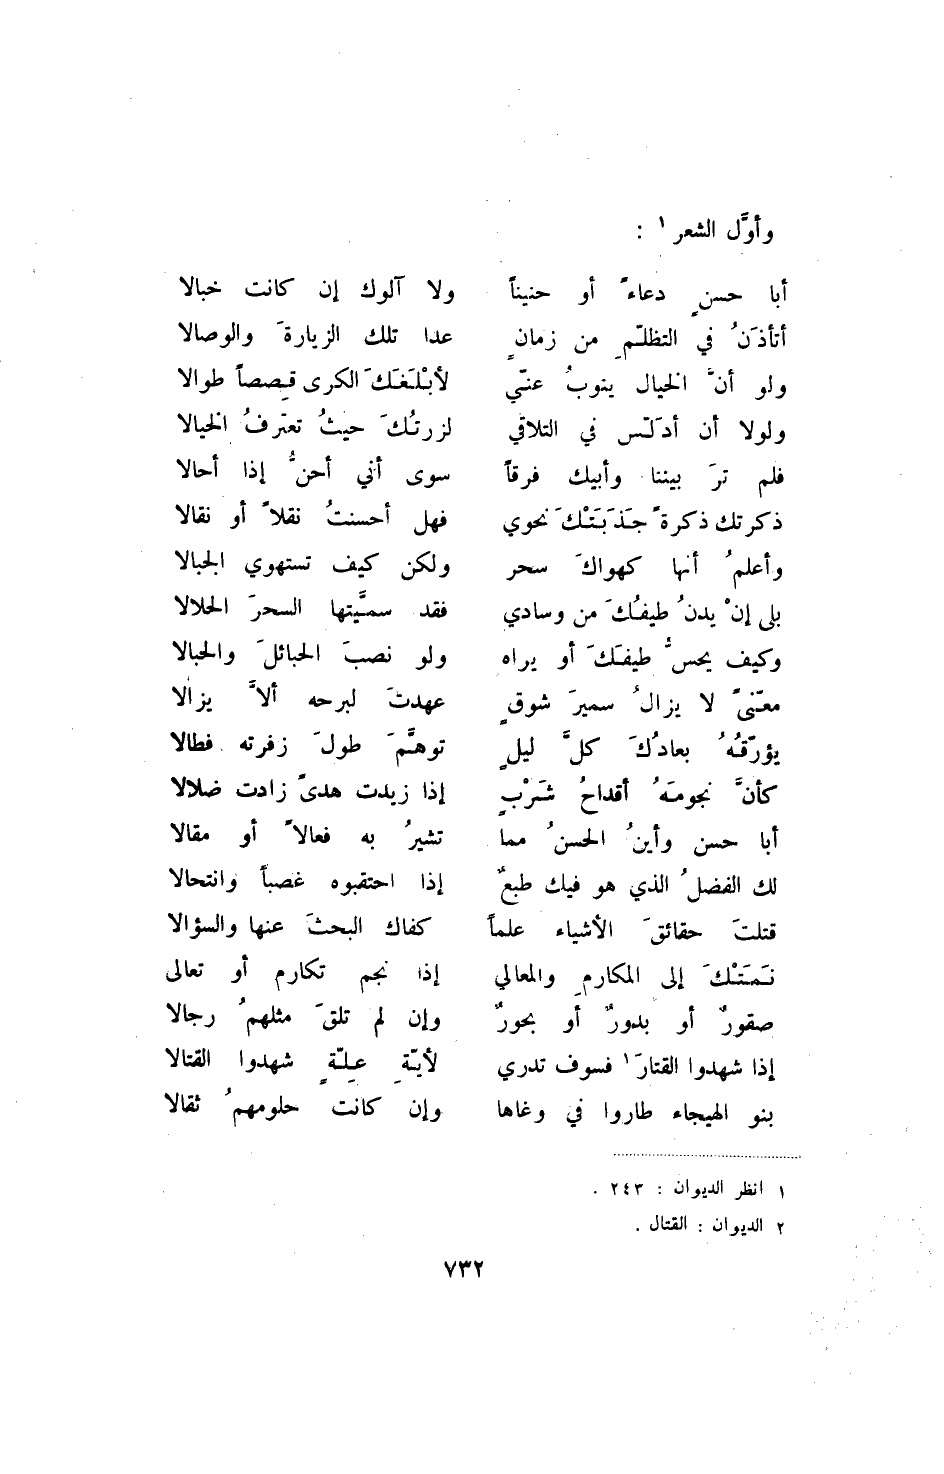 وأوَّل الشعر ١ :
أبا حسنٍ دعاءً أو حنيناً ولا آلوك إن كانت خبالا
أتأذَنُ في التظلّمِ من زمانٍ عدا تلك الزيارةَ والوصالا
ولو أنَّ الخيال ينوبُ عنّي لأبْلَغَكَ الكرى قِصصاً طوالا
ولولا أن أدَلّس في التلاقي لزرتُكَ حيثُ تعترفُ الخيالا
فلم ترَ بيننا وأبيك فرقاً سوى أني أحنُّ إذا أحالا
ذكرتك ذكرةً جَذَبَتْكَ نحوي فهل أحسنتُ نقلاً أو نقالا
وأعلمُ أنها كهواكَ سحر ولكن كيف تستهوي الجبالا
بلى إنْ يدنُ طيفُكَ من وسادي فقد سميَّتها السحرَ الحلالا
وكيف يحسُّ طيفَكَ أو يراه ولو نصبَ الحبائلَ والحبالا
معنّىً لا يزالُ سميرَ شوقٍ عهدتَ لبرحه ألاَّ يزالا
يؤرّقُهُ بعادُكَ كلَّ ليلٍ توهَّمَ طولَ زفرته فطالا
كأنَّ نجومَهُ أقداحُ شَرْبٍ إذا زيدت هدىً زادت ضلالا
أبا حسن وأينُ الحسنُ مما تشيرُ به فعالاً أو مقالا
لك الفضلُ الذي هو فيك طبعٌ إذا احتقبوه غصباً وانتحالا
قتلتَ حقائقَ الأشياء علماً كفاك البحثَ عنها والسؤالا
نَمَتْكَ إلى المكارمِ والمعالي إذا نجم تكارم أو تعالى
صقورٌ أو بدورٌ أو بحورٌ وإن لم تلقَ مثلهمُ رجالا
إذا شهدوا القتارَ ١ فسوف تدري لأيّةِ عِلّةٍ شهدوا القتالا
بنو الهيجاء طاروا في وغاها وإن كانت حلومهمُ ثقالا
١ انظر الديوان : ٢٤٣ .
٢ الديوان : القتال .
٧٣٢